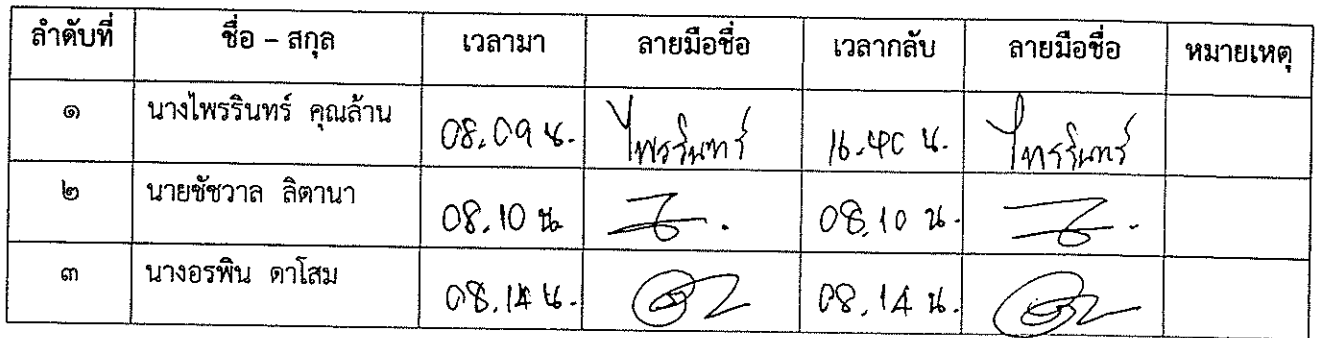 ลำดับที่ ชื่อ – สกุล เวลามา ลายมือชื่อ เวลากลับ ลายมือชื่อ หมายเหตุ
๑ นางไพรรินทร์ คุณล้าน 08.09 น. ไพรรินทร์ 16.40 น. ไพรรินทร์
๒ นายชัชวาล ลิตานา 08.10 น. 08.10 น.
๓ นางอรพิน ดาโสม 08.14 น. 08.14 น.